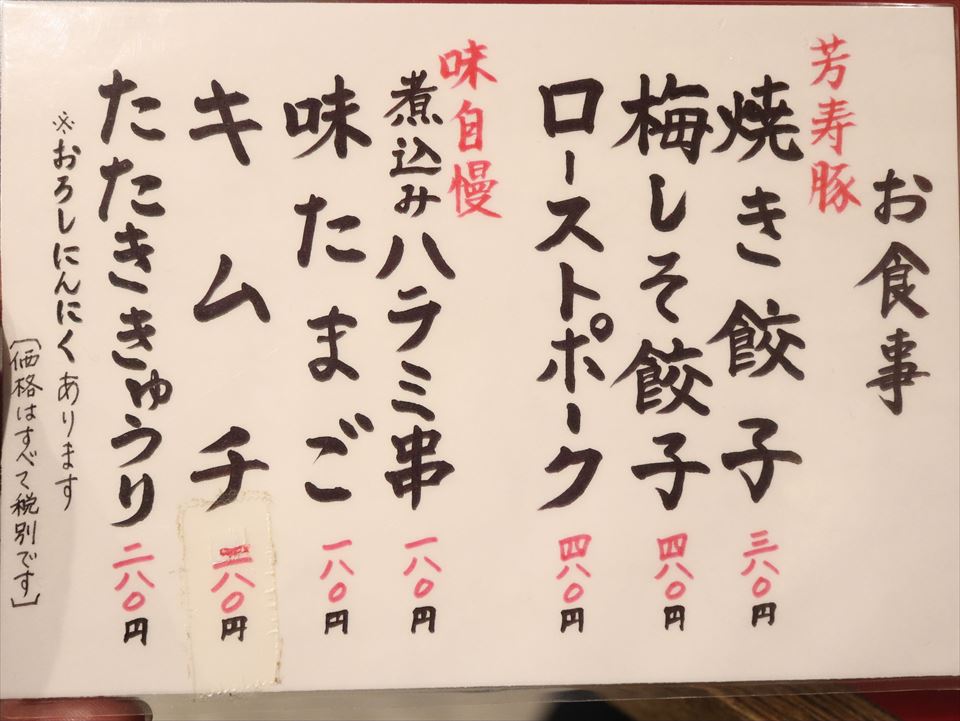 お食事
芳寿豚
焼き餃子 三八〇円
梅しそ餃子 四八〇円
ローストポーク 四八〇円
味自慢
煮込みハラミ串 一八〇円
味たまご 一八〇円
キムチ
たたききゅうり 二八〇円
※おろしにんにくあります
〔価格はすべて税別です〕